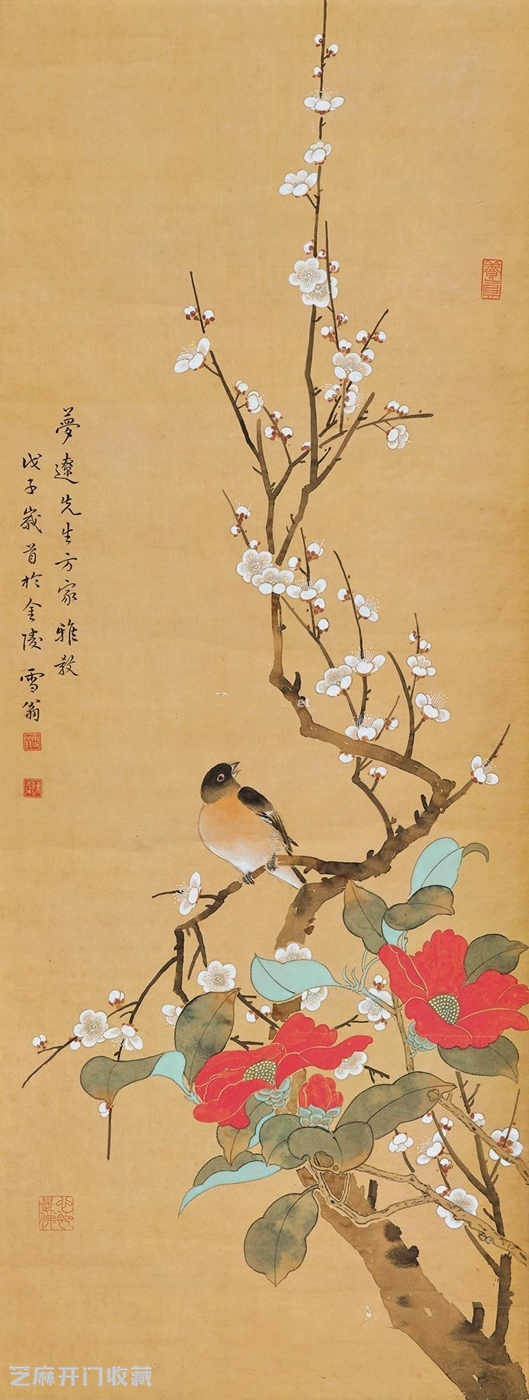 夢遼先生方家雅教
戊子歲首於金陵 雪翁
芝麻开门收藏